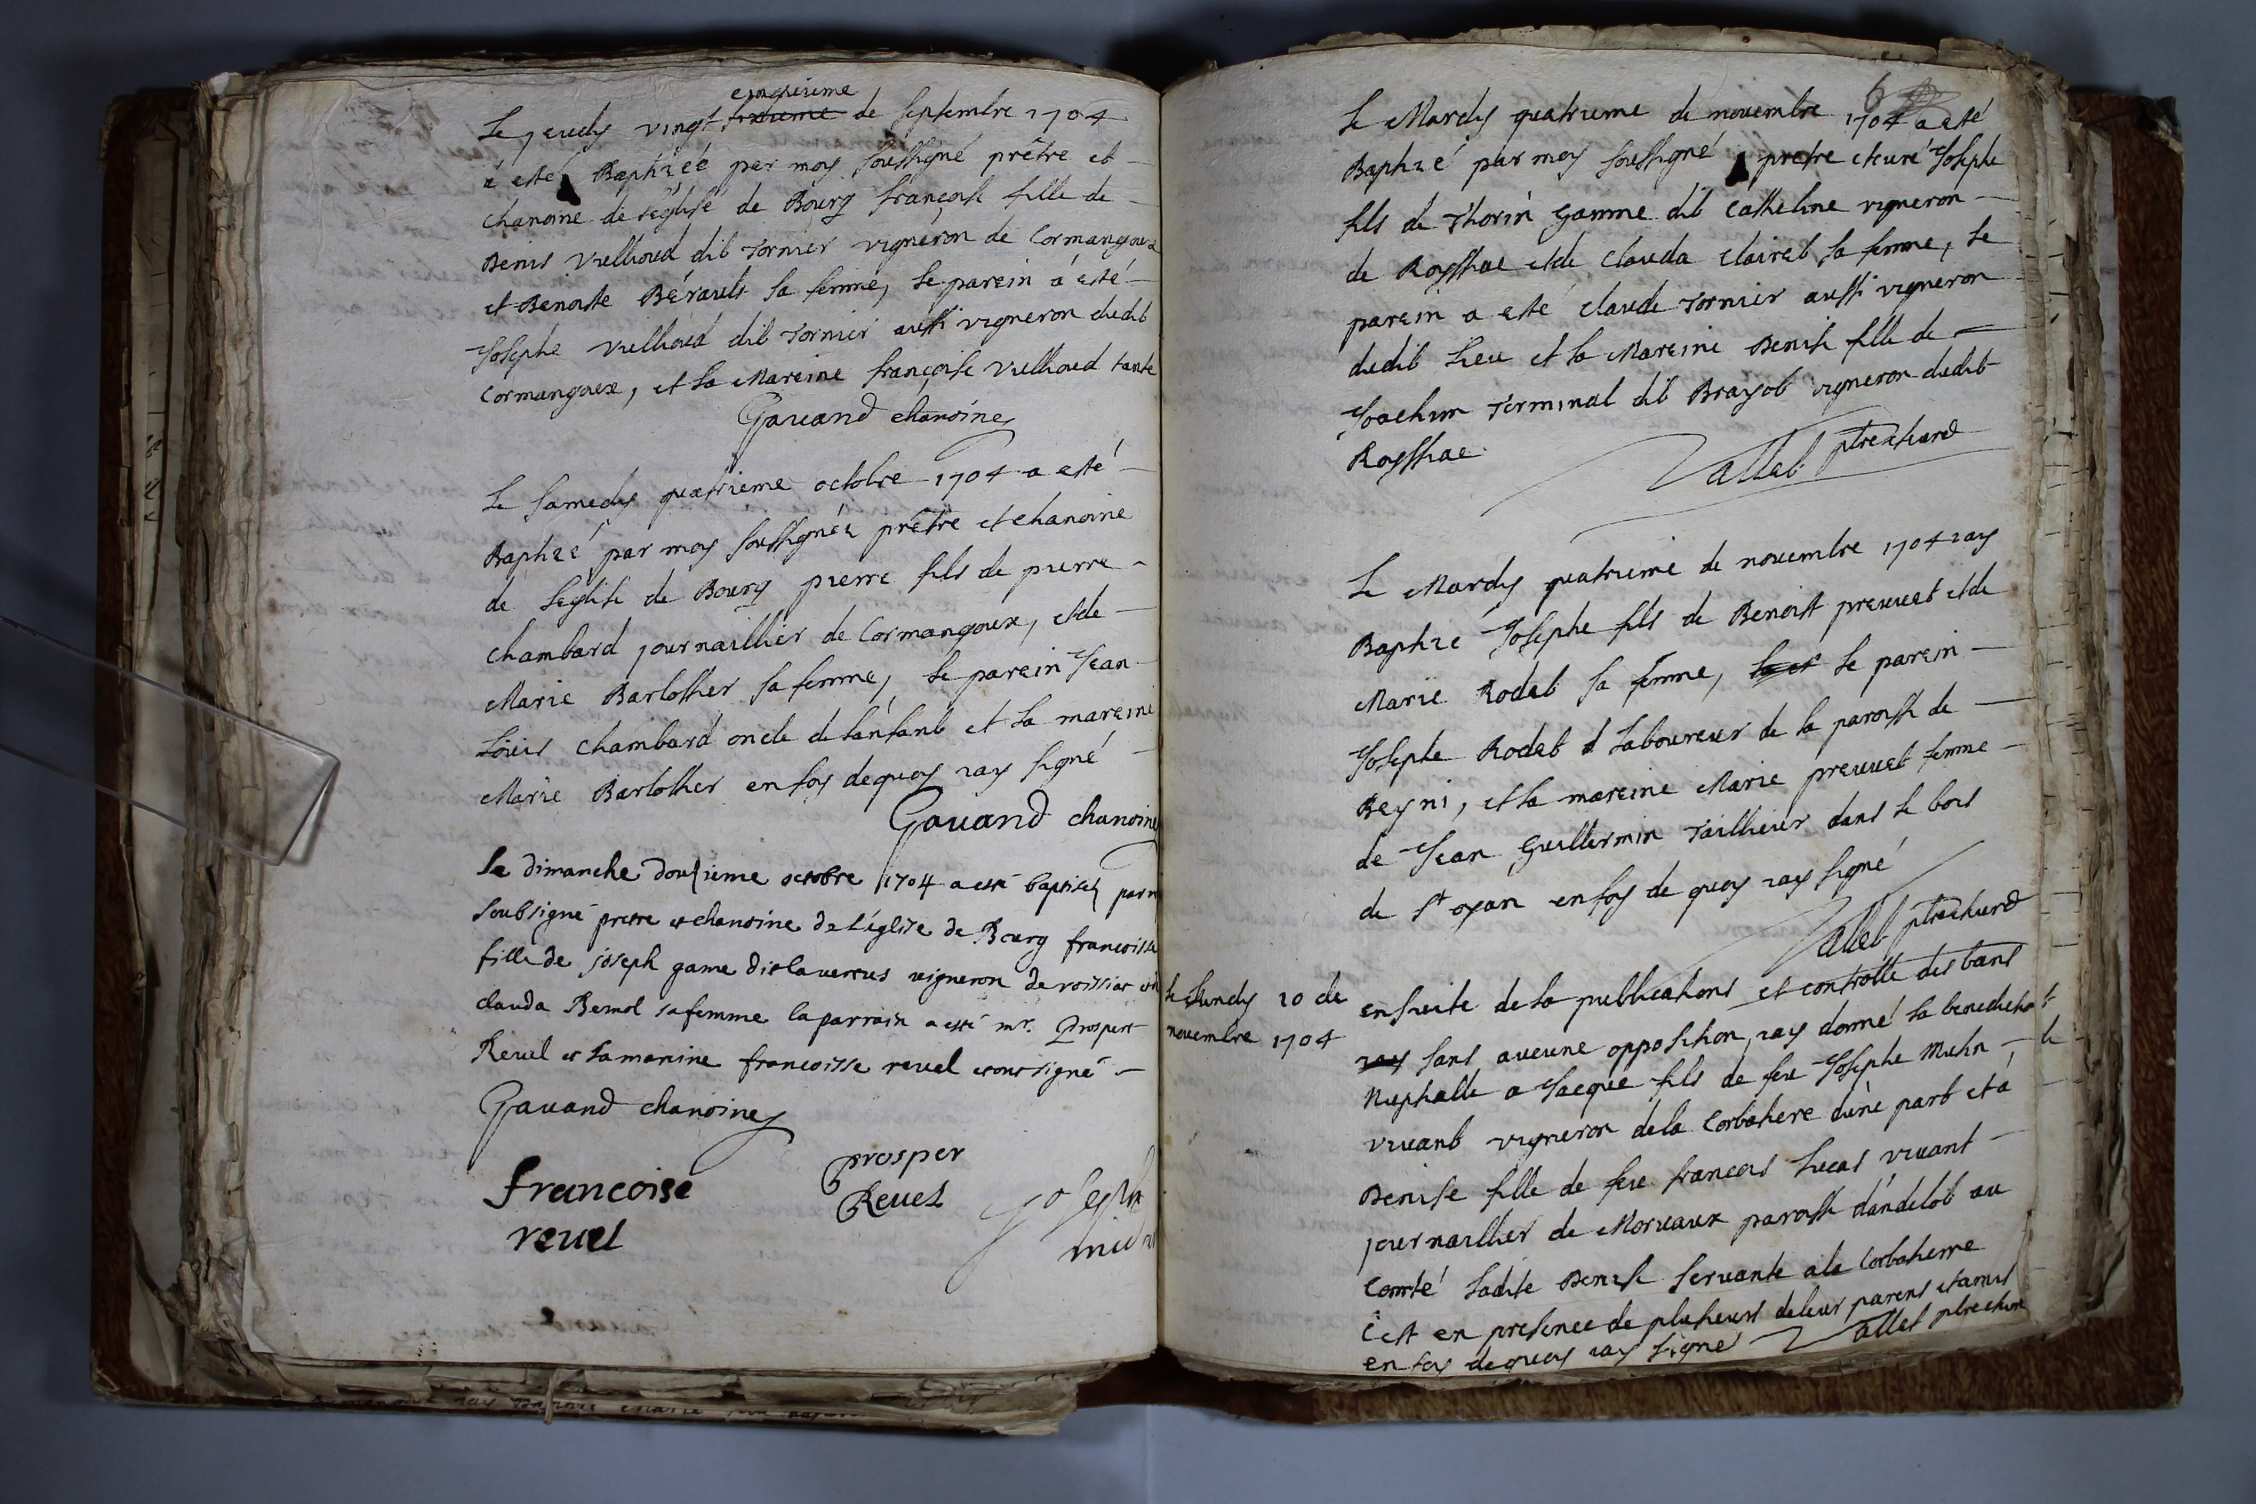 Le jeudy vingt cinquieme de septembre 1704
a esté Baptizéé par moy soussigné prêtre et
chanoine de l'eglise de Bourg françoise fille de
Denis vullioud dit Tornier vigneron de Cormangoux
et Benoiste Bérauls sa femme, le parein a esté
Josephe vullioud dit Tornier aussi vigneron dudit
Cormangoux, et la Mareine françoise vullioud tante
Gavand chanoine
Le samedy quatrieme octobre 1704 a esté
Baptizé par moy soussignéz prêtre et chanoine
de l'eglise de Bourg pierre fils de pierre
chambard journaillier de Cormangoux, et de
Marie Bartolher sa femme, le parein Jean
Loüis chambard oncle de lanfant et la mareine
Marie Bartolher en foy dequoy iay signé
Gavand chanoine
Le dimanche douzieme octobre 1704 a esté baptisez par
soubsigné prestre et chanoine de l'église de Bourg francoisse
fille de joseph game dit lavernus vigneron de roissiat et
clauda Bemol sa femme la parrain a esté mr. Prosper
Revel et la marine francoisse revel et ont signé
Gavand chanoine
francoise
revel
prosper
Revel
joseph
6
Le Mardy quatrieme de novembre 1704 a esté
Baptizé par moy soussigné prêtre et curé Josephe
fils de Thorin Gamme dit Catheline vigneron
de Royssiac et de Clauda Clairet sa femme, le
parein a esté claude Tornier aussi vigneron
dudit lieu et la Mareine Denise fille de
Joachim Terminal dit Brayot vigneron dudit
Royssiac
Vallet ptre et curé
Le Mardy quatrieme de novembre 1704 iay
Baptizé Josephe fils de Benoist preuvet et de
Marie Rodet sa femme, le parein
Josephe Rodet laboureur de la paroisse de
Beyni, et la mareine Marie preuvet femme
de Jean Guillermin Taillieur dans le bois
de St oyan en foy de quoy iay signé
Vallet ptre et curé
Le Lundy 10 de
novembre 1704
ensuite de la publications et controlle des bans
iay sans aucune opposition, iay donné la benediction
Nuptialle a Jacque fils de feu Josephe Muhn
vivant vigneron de la Corbatiere d'une part et à
Denise fille de feu françois Lucas vivant
journaillier de Morvaux paroisse d'andelot au
Comté ladite Denise servante a la Corbatierre
C'est en presence de plusieurs de leur parens et amis
en foy dequoy iay signé Vallet ptre et curé